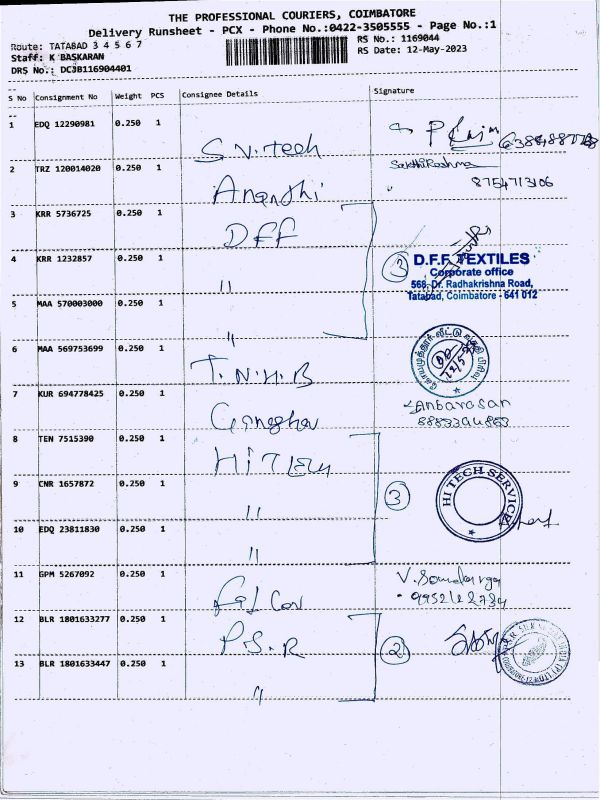 THE PROFESSIONAL COURIERS, COIMBATORE
Delivery Runsheet - PCX - Phone No.:0422-3505555 - Page No.:1
Route: TATABAD 3 4 5 6 7
RS No.: 1169044
Staff: K BASKARAN
RS Date: 12-May-2023
DRS No.: DCJB116904401
S No Consignment No Weight PCS Consignee Details Signature
1 EDQ 12290981 0.250 1 S.V.Tech
2 TRZ 120014020 0.250 1 Ananthi 8754713106
3 KRR 5736725 0.250 1 DFF
4 KRR 1232857 0.250 1 " 3 D.F.F. TEXTILES
Corporate office
568, Dr. Radhakrishna Road,
Tatabad, Coimbatore - 641 012
5 MAA 570003000 0.250 1 "
6 MAA 569753699 0.250 1 T.N.H.B
7 KUR 694778425 0.250 1 Anbarasan
8 TEN 7515390 0.250 1
9 CNR 1657872 0.250 1 " 3 HI TECH SERVICE
10 EDQ 23811830 0.250 1 "
11 GPM 5267092 0.250 1
12 BLR 1801633277 0.250 1 P.S.R 2
13 BLR 1801633447 0.250 1 "